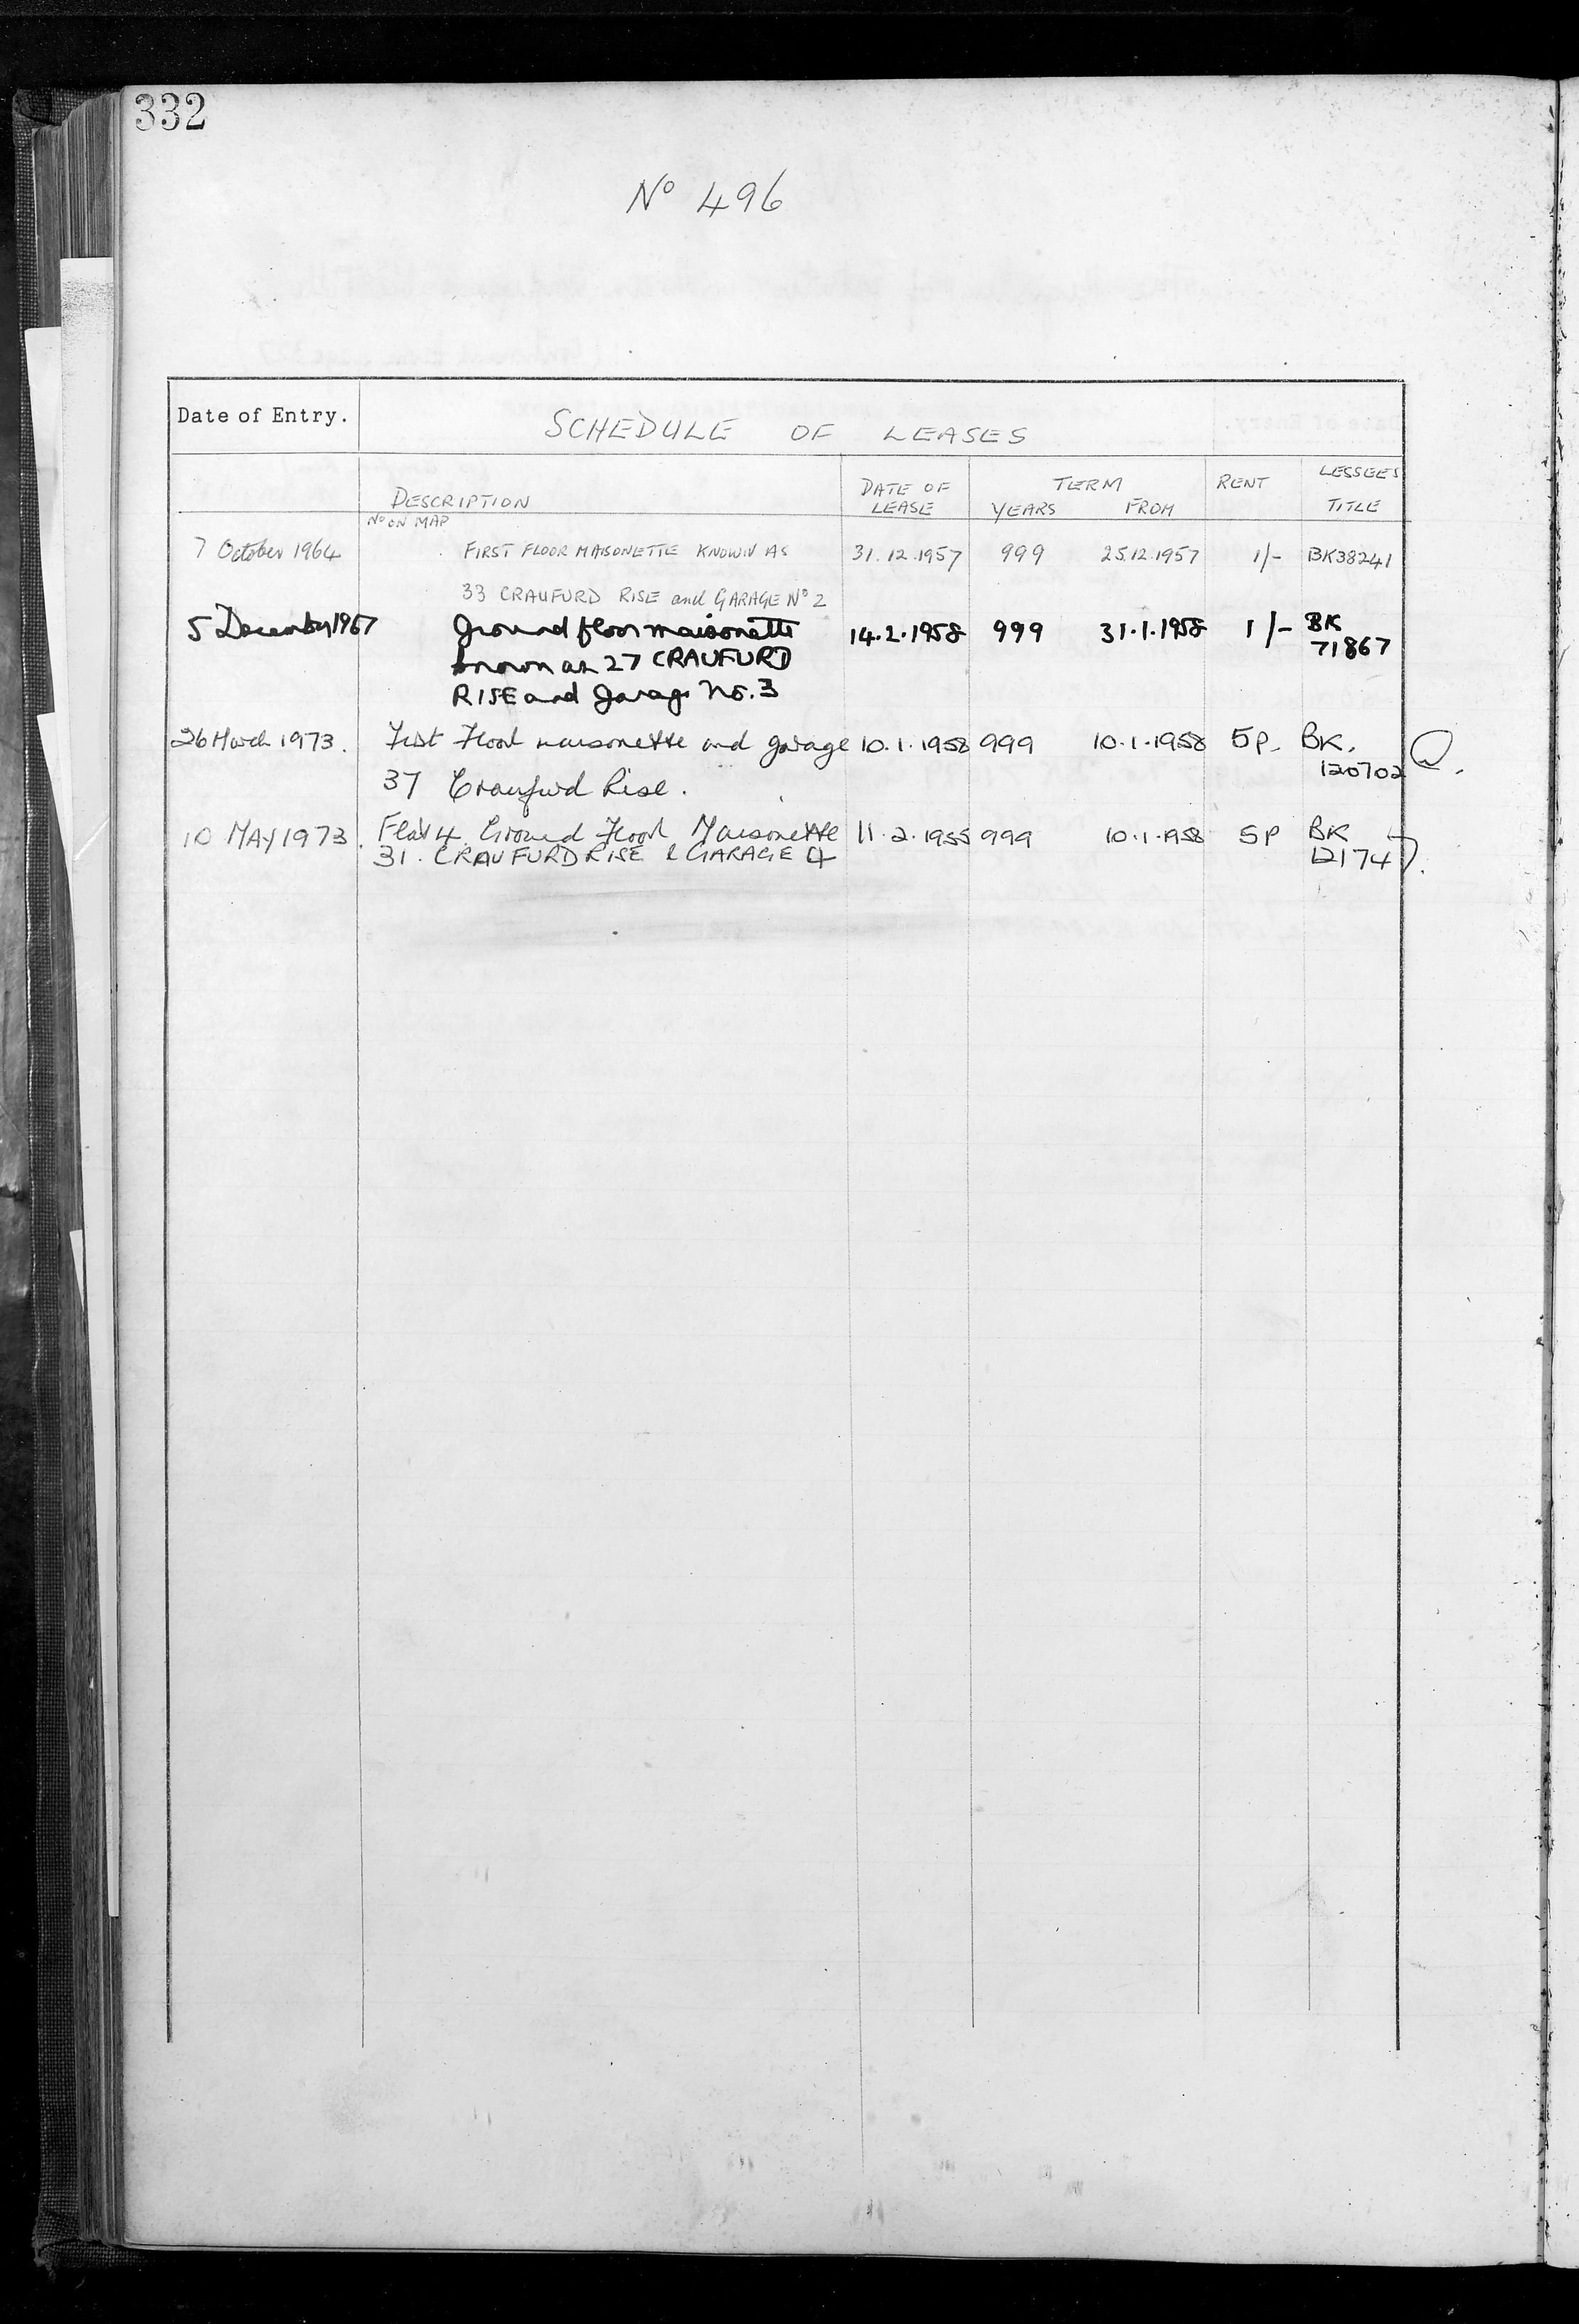 332
Nº 496
Date of Entry.
SCHEDULE OF LEASES
DESCRIPTION DATE OF LEASE TERM YEARS FROM RENT LESSEES TITLE
Nº ON MAP
7 October 1964 FIRST FLOOR MAISONETTE KNOWN AS 31.12.1957 999 25.12.1957 1/- BK38241
33 CRAUFURD RISE and GARAGE Nº 2
5 December 1967 Ground floor maisonette 14.2.1958 999 31.1.1958 1/- BK
known as 27 CRAUFURD 71867
RISE and Garage No. 3
26 March 1973. First Floor maisonette and garage 10.1.1958 999 10.1.1958 5p. BK.
37 Craufurd Rise. 120702
10 MAY 1973. Flat 4 Ground Floor Maisonette 11.2.1955 999 10.1.1958 5P BK
31. CRAUFURD RISE & GARAGE 4 12174